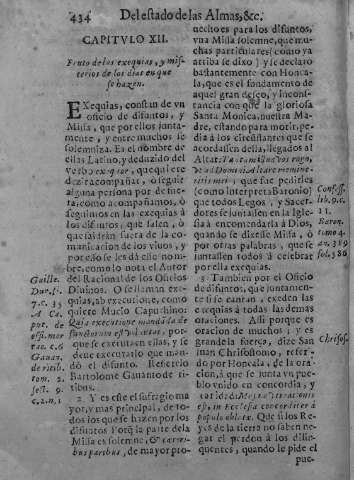 434 Del estado de las Almas, &c.
CAPITVLO XII.
Fruto de las exequias, y mis-
terios de los dias en que
se hazen.
EXequias, constan de vn
oficio de difuntos, y
Missa, que por ellos junta-
mente, y entre muchos se
solemniza. Es el nombre de
ellas Latino, y deduzido del
verbo exequor, que quiere
dezir acompañar, ò seguir
alguna persona por cuenta,
como acompañamos, ò
seguimos en las exequias à
los difuntos, que salen, ò
que salieron fuera de la co-
municacion de los viuos, y
por esso se les dà este nom-
bre, como lo nota el Autor
del Racional de los Oficios
Diuinos. O se llaman exe-
quias, ab executione, como
quiere Mucio Capuchino:
Quia executione mandãda de
functorum est voluntas, por-
que se executa en ellas, y se
deue executar lo que man-
dò el difunto. Refierelo
Bartolome Gauanto de ri-
tibus.
2 Y es este el sufragio ma
yor, y mas principal, de to-
dos los que se hazen por los
difuntos. Porq̃ la parte dela
Missa es solemne, & cæteris
paribus, de mayor pro-
Guille.
Dur. l.
7. c. 35
A Ca
puc. de
offi. mor
tuo. c. 6
Gauan.
de ritib.
tom. 2.
sect. 9.
c. 2. n. 1
uecho es para los difuntos,
vna Missa solemne, que mu
chas particulares (como ya
arriba se dixo) y lo declarò
bastantemente con Honca-
la, que es el fundamento de
aquel gran desseo, y instan-
cia con que la gloriosa
Santa Monica, nuestra Ma-
dre, estando para morir, pe-
dia à los circunstantes que se
acordassen della, llegados al
Altar:
que se justifica
(como interpreta Baronio)
que todos Legos, y Sacer-
dotes se juntassen en la Igle-
sia à encomendarla à Dios,
quando se dixesse Missa, ò
por otras palabras, que se
juntassen todos à celebrar
por ella exequias.
3 Tambien por el Oficio
de difuntos, que juntamen-
te se cantan, exeden las
exequias à todas las demas
oraciones. Assi porque es
oracion de muchos; y es
grande la fuerça, dize San
Iuan Chrisostomo, referi-
do por Honcala, de la ora-
cion, à que se junta vn pue-
blo vnido en concordia, y
est, in Ecclesia concorditer à
populo oblatæ. Que si los Re-
yes de la tierra no saben ne-
gar el perdon à los delin-
quentes, quando le pide el
pue-
Confess.
lib. 9. c.
11.
Baron.
tome 4.
an. 389
fol. 586
Chrisos.